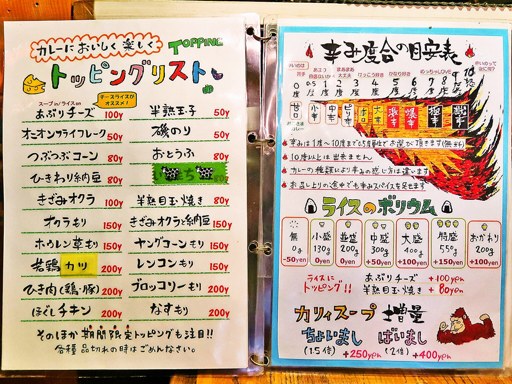 カレーにおいしく楽しく
TOPPING
トッピングリスト
スープin/ライスon
チーズライスがオススメ!
あぶりチーズ 100y
オニオンフライフレーク 50y
つぶつぶコーン 80y
ひきわり納豆 80y
きざみオクラ 100y
オクラもり 150y
ホウレン草もり 150y
若鶏カツ 200y
ひき肉(鶏・豚) 200y
ほぐしチキン 200y
半熟玉子 50y
磯のり 50y
おとうふ 80y
半熟目玉焼き 80y
きざみオクラと納豆 150y
ヤングコーンもり 150y
レンコンもり 150y
ブロッコリーもり 200y
なすもり 200y
そのほか期間限定トッピングも注目!!
各種品切れの時はごめんなさい。
辛み度合の目安表
0度 1度 2度 3度 4度 5度 6度 7度 8度 9度 10度
甘口 小辛 中辛 ピリ辛 大辛
辛みは1度〜10度まで0.5度単位でお選び頂きます(無料)
10度以上は出来ません
カレーの種類により辛みの感じ方は違います
お召し上りの途中でも辛みスパイスを足せます
ライスのボリウム
無 0g -50yen
小盛 130g 0yen
並盛 200g 0yen
中盛 300g +50yen
大盛 400g +100yen
特盛 550g +150yen
おかわり 200g +100yen
ライスにトッピング!!
あぶりチーズ +100yen
半熟目玉焼き +80yen
カリィスープ増量
ちょいまし (1.5倍) +250yen
ばいまし (2倍) +400yen